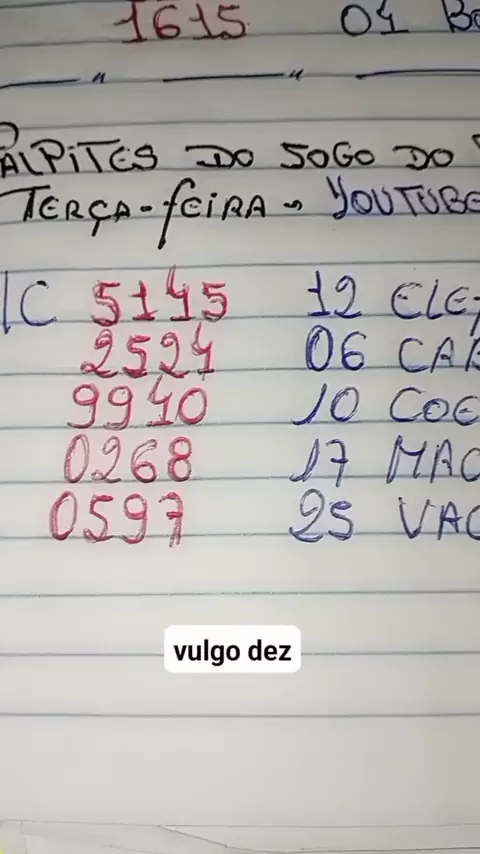 1615 01
PALPITES DO JOGO DO
TERÇA-FEIRA YOUTUBE
5145 12 ELE
2524 06 CAB
9940 10 COE
0268 17 MAC
0597 25 VAC
vulgo dez